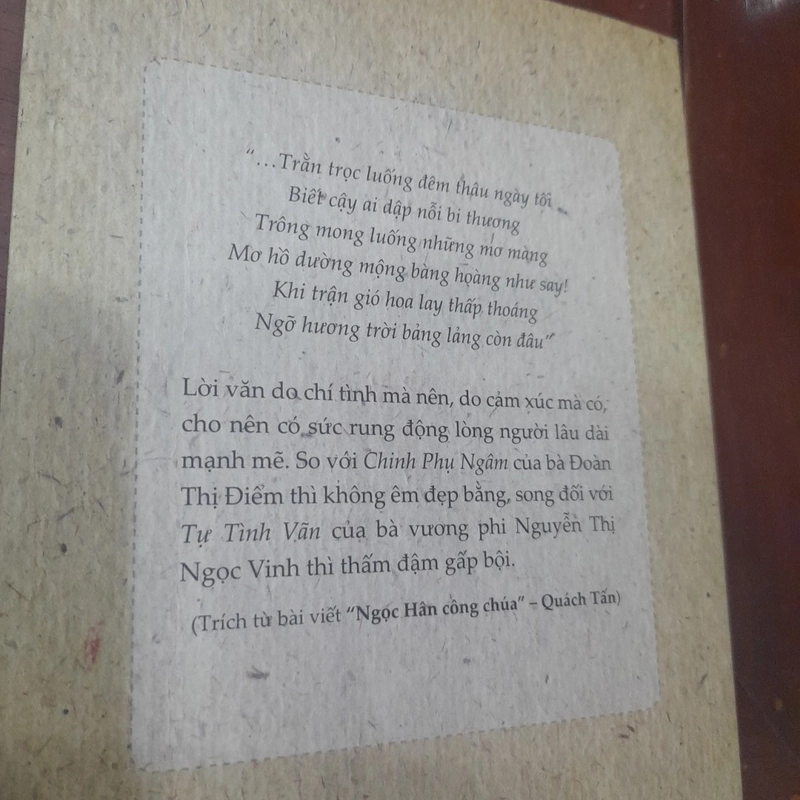 “...Trằn trọc luống đêm thâu ngày tối
Biết cậy ai dập nỗi bi thương
Trông mong luống những mơ màng
Mơ hồ dường mộng bàng hoàng như say!
Khi trận gió hoa lay thấp thoáng
Ngỡ hương trời bảng lảng còn đâu”
Lời văn do chí tình mà nên, do cảm xúc mà có,
cho nên có sức rung động lòng người lâu dài
mạnh mẽ. So với Chinh Phụ Ngâm của bà Đoàn
Thị Điểm thì không êm đẹp bằng, song đối với
Tự Tình Vãn của bà vương phi Nguyễn Thị
Ngọc Vinh thì thấm đậm gấp bội.
(Trích từ bài viết “Ngọc Hân công chúa” – Quách Tấn)